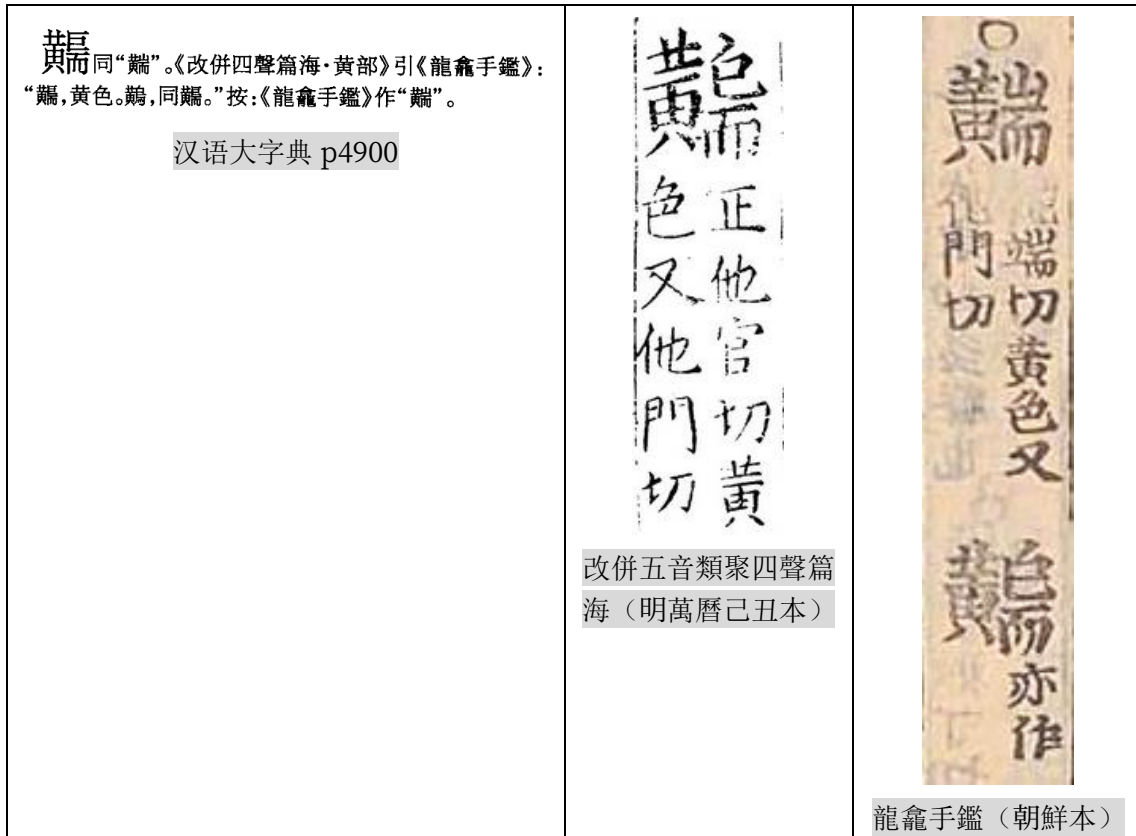 同“䵎”。《改併四聲篇海·黄部》引《龍龕手鑑》:
“,黄色。,同。”按:《龍龕手鑑》作“䵎”。
汉语大字典 p4900
正他官切黃
色又他門切
改併五音類聚四聲篇
海（明萬曆己丑本）
䵎
端切黃色又
他門切
亦作
龍龕手鑑（朝鮮本）